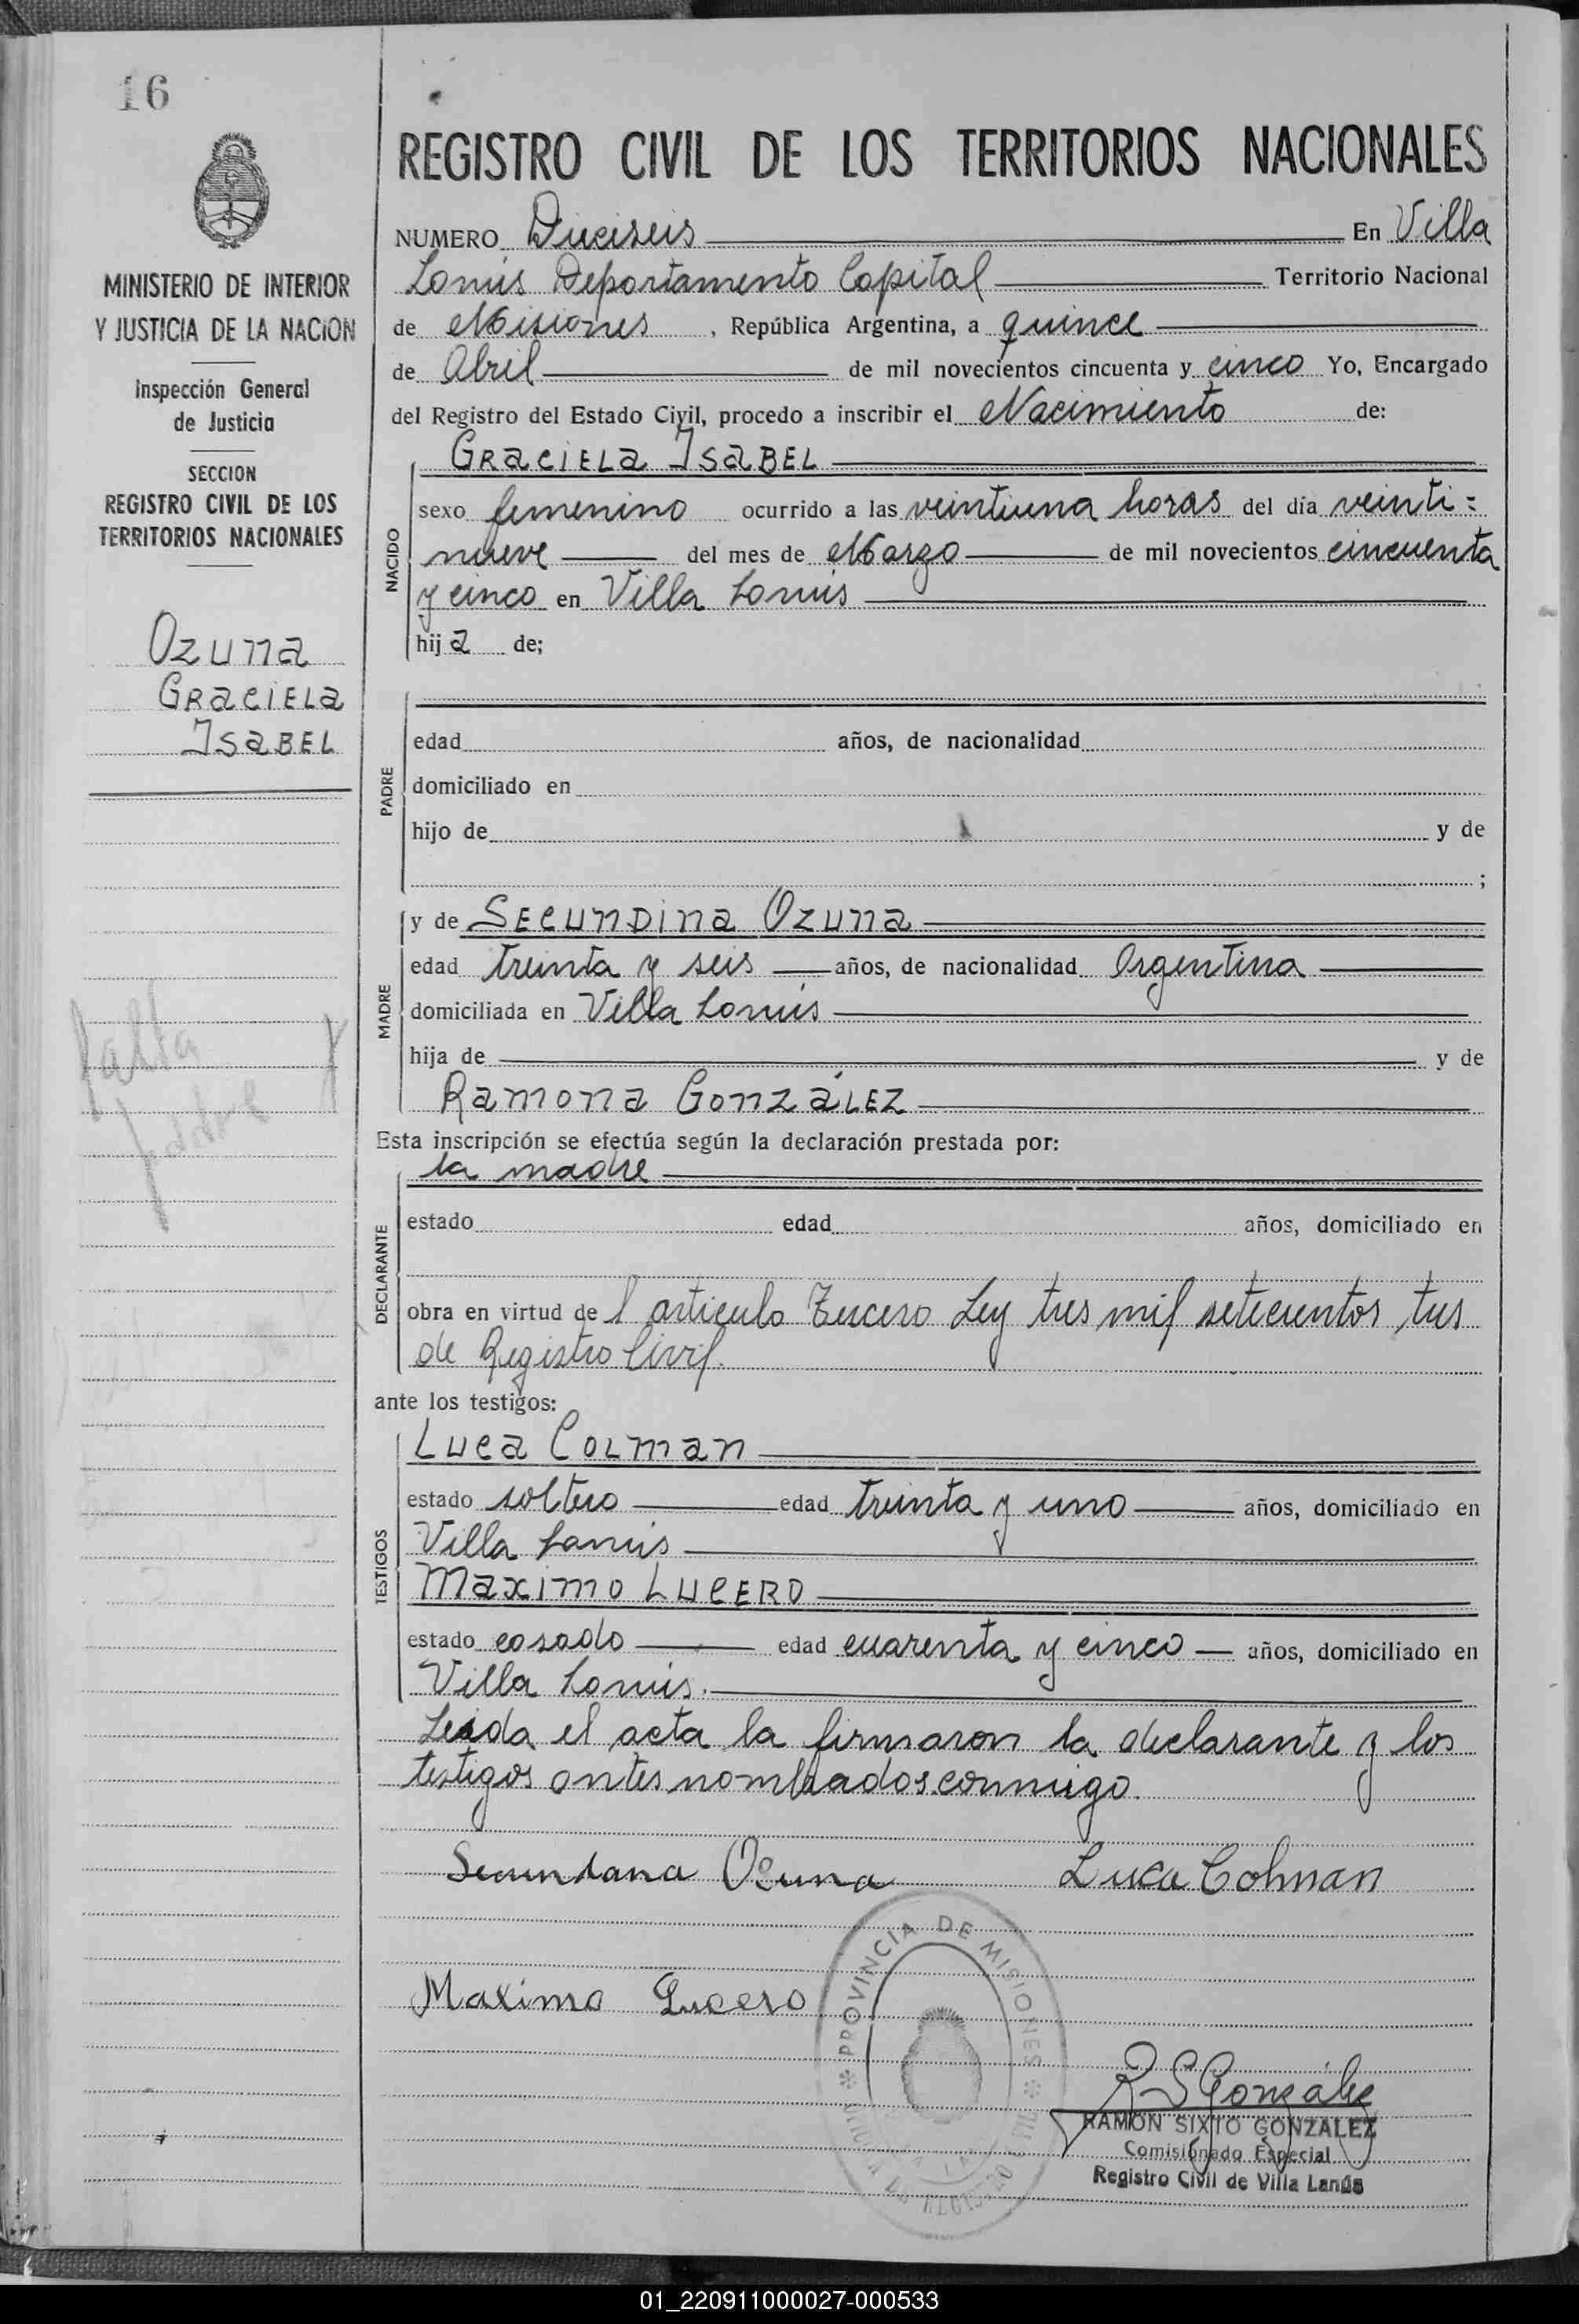 16
REGISTRO CIVIL DE LOS TERRITORIOS NACIONALES
MINISTERIO DE INTERIOR
Y JUSTICIA DE LA NACION
Inspección General
de Justicia
SECCION
REGISTRO CIVIL DE LOS
TERRITORIOS NACIONALES
Ozuna
Graciela
Isabel
falta
padre
NUMERO Dieciseis En Villa
Lanús Departamento Capital Territorio Nacional
de Misiones, República Argentina, a quince
de Abril de mil novecientos cincuenta y cinco Yo, Encargado
del Registro del Estado Civil, procedo a inscribir el Nacimiento de:
NACIDO
Graciela Isabel
sexo femenino ocurrido a las veintiuna horas del día veinti=
nueve del mes de Marzo de mil novecientos cincuenta
y cinco en Villa Lanús
hija de;
PADRE
edad años, de nacionalidad
domiciliado en
hijo de y de
;
MADRE
y de Secundina Ozuna
edad treinta y seis años, de nacionalidad Argentina
domiciliada en Villa Lanús
hija de y de
Ramona González
Esta inscripción se efectúa según la declaración prestada por:
DECLARANTE
la madre
estado edad años, domiciliado en
obra en virtud del articulo Tercero Ley tres mil setecientos tres
de Registro Civil.
ante los testigos:
TESTIGOS
Luca Colman
estado soltero edad treinta y uno años, domiciliado en
Villa Lanús
Maximo Lucero
estado casado edad cuarenta y cinco años, domiciliado en
Villa Lanús.
Leida el acta la firmaron la declarante y los
testigos antes nombrados conmigo.
Secundana Osuna Luca Colman
Maximo Lucero
PROVINCIA DE MISIONES
R S González
RAMON SIXTO GONZALEZ
Comisionado Especial
Registro Civil de Villa Lanús
01_220911000027-000533